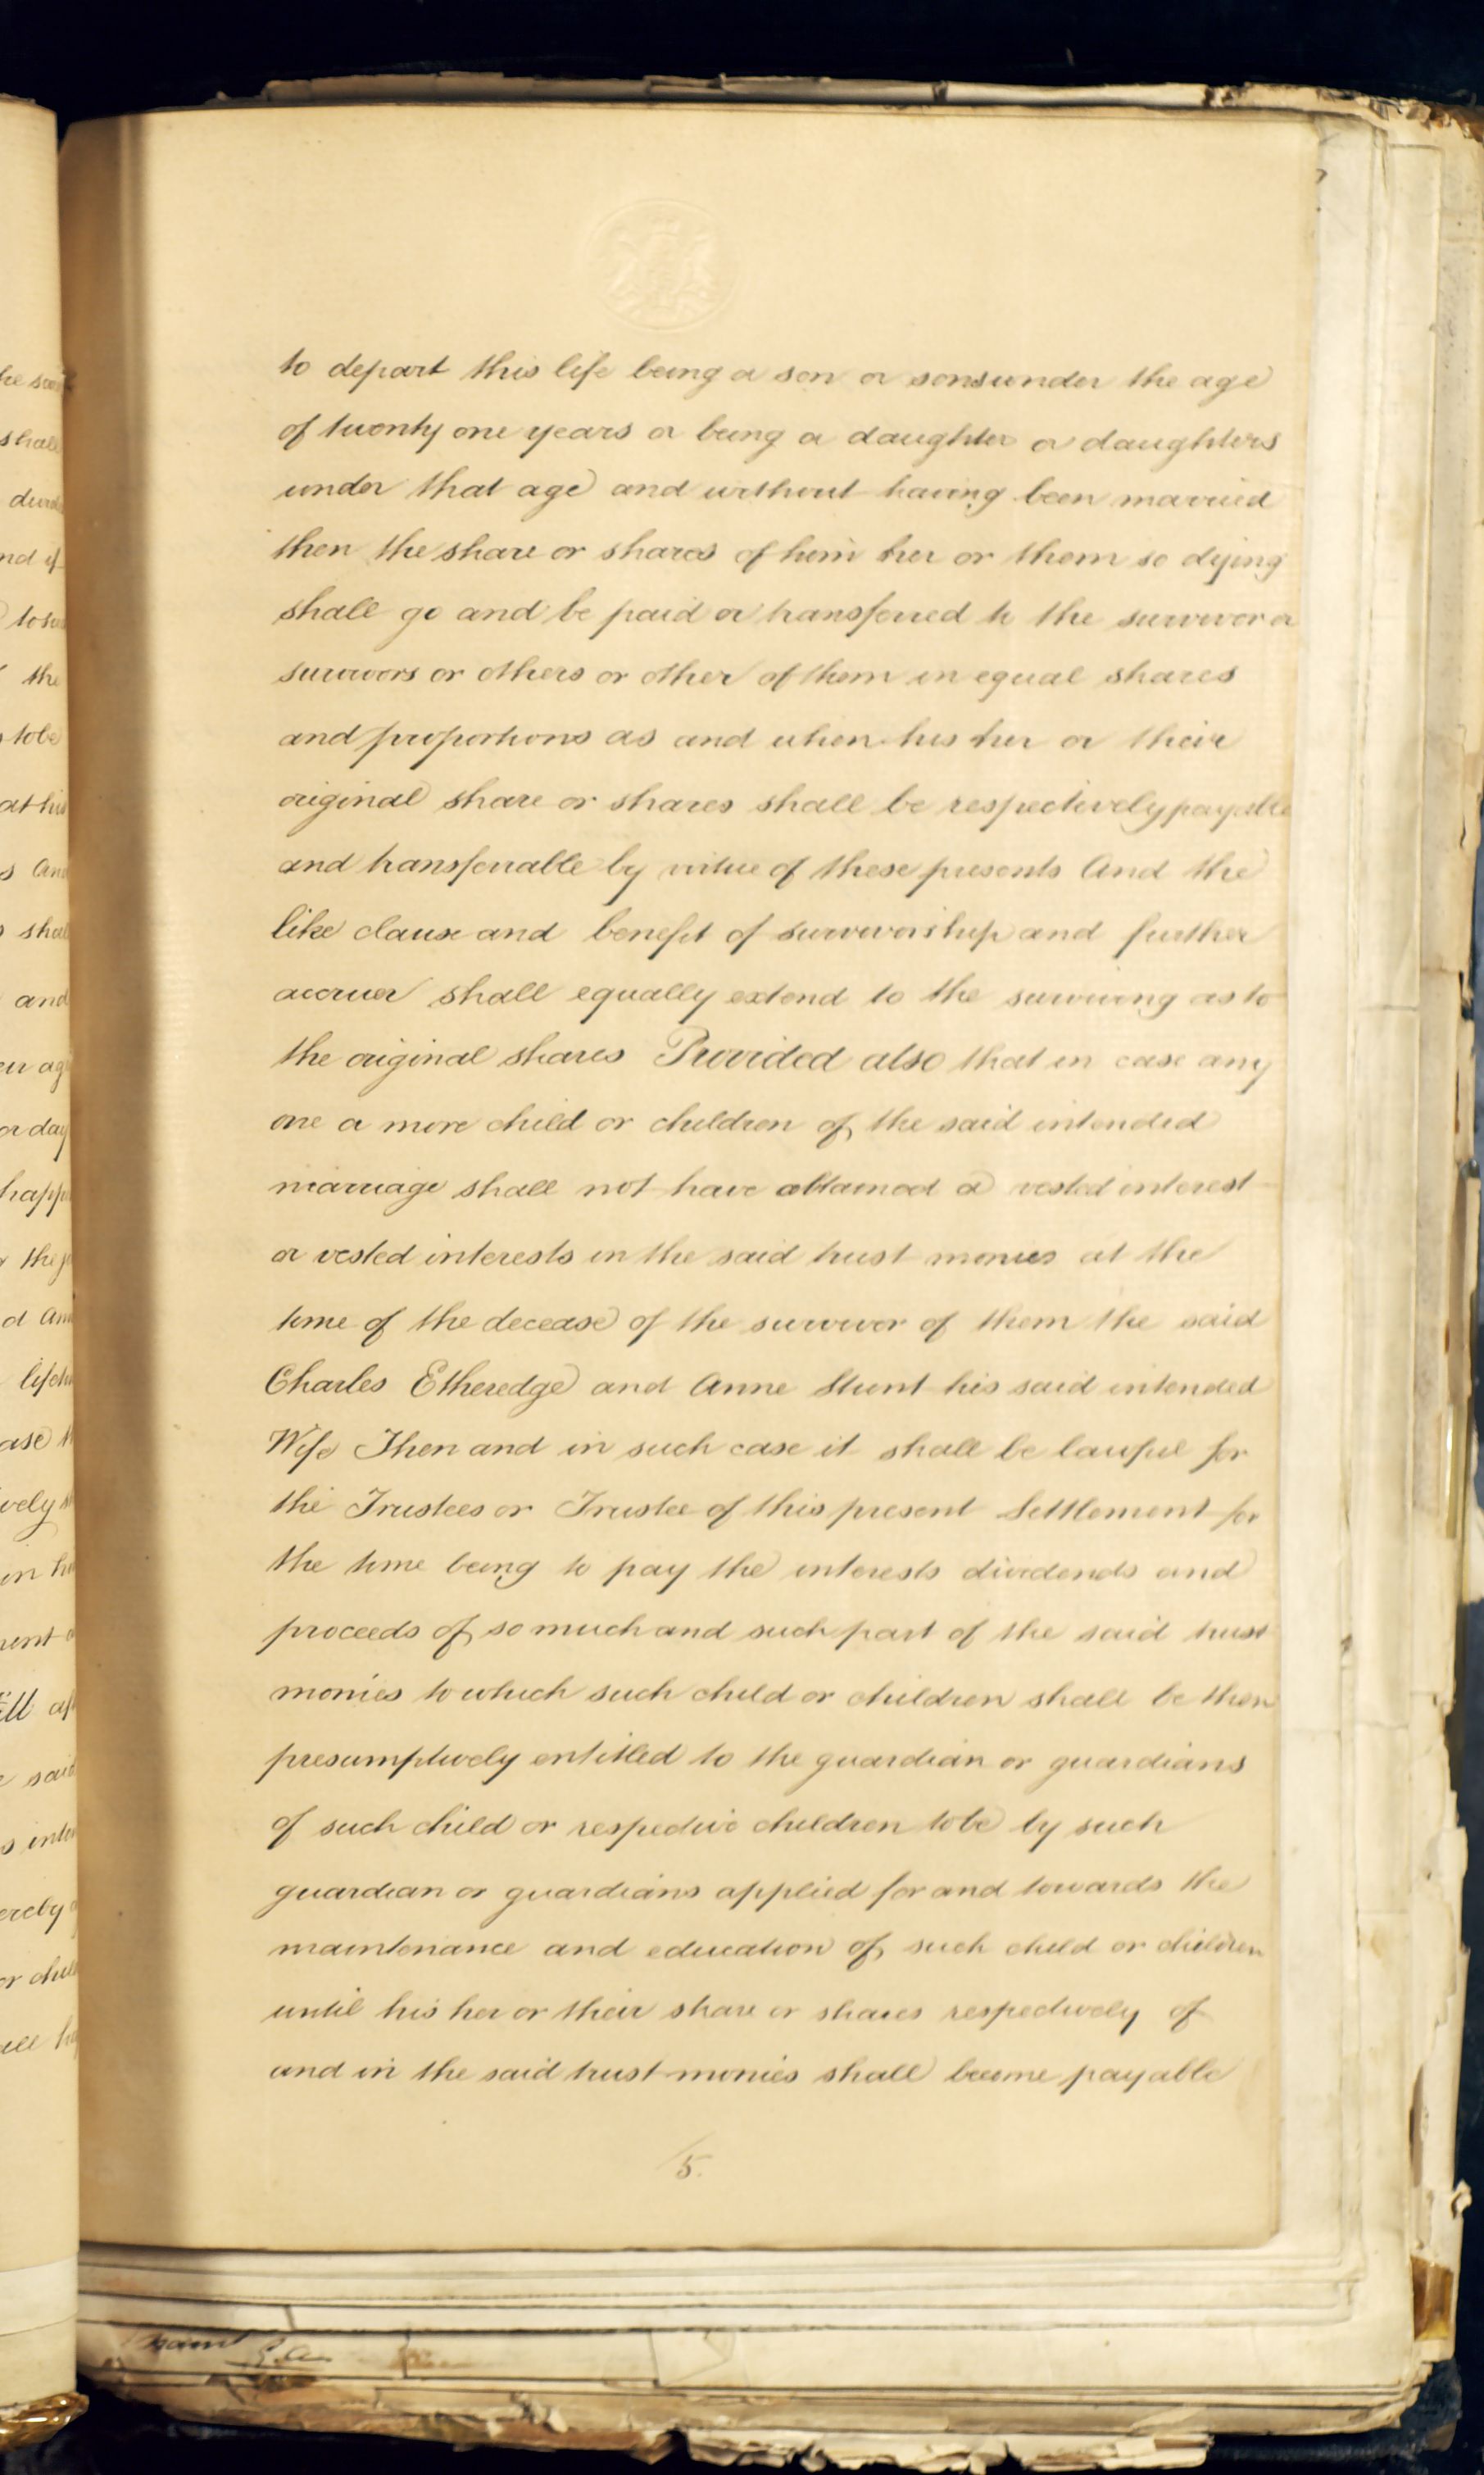 to depart this life being a son or sons under the age
of twenty one years or being a daughter or daughters
under that age and without having been married
then the share or shares of him her or them so dying
shall go and be paid or transferred to the survivor or
survivors or others or other of them in equal shares
and proportions as and when his her or their
original share or shares shall be respectively payable
and transferrable by virtue of these presents And the
like clause and benefit of survivorship and further
accruer shall equally extend to the surviving as to
the original shares Provided also that in case any
one or more child or children of the said intended
marriage shall not have attained a vested interest
or vested interests in the said trust monies at the
time of the decease of the survivor of them the said
Charles Etheredge and Anne Stunt his said intended
Wife Then and in such case it shall be lawful for
the Trustees or Trustee of this present Settlement for
the time being to pay the interests dividends and
proceeds of so much and such part of the said trust
monies to which such child or children shall be then
presumptively entitled to the guardian or guardians
of such child or respective children to be by such
guardian or guardians applied for and towards the
maintenance and education of such child or children
until his her or their share or shares respectively of
and in the said trust monies shall become payable
5.